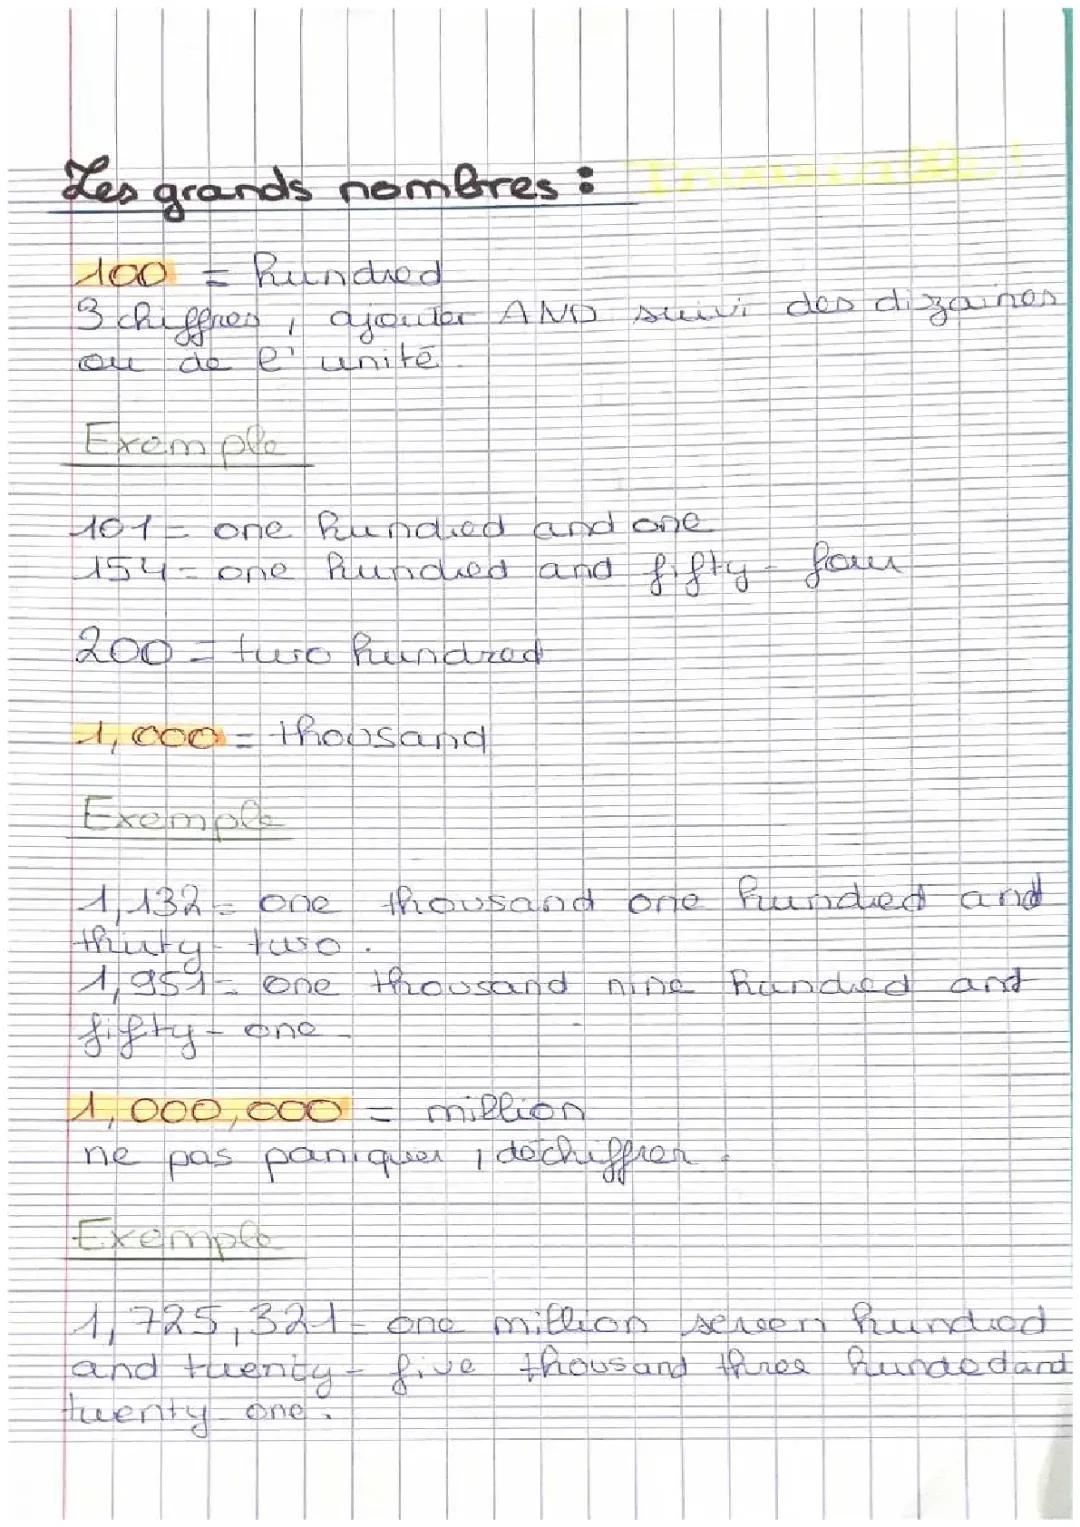 Les grands nombres : Invariable !
100 = hundred
3 chiffres, ajouter AND suivi des dizaines
ou de l'unité.
Exemple
101 = one hundred and one
154 = one hundred and fifty-four
200 = two hundred
1,000 = thousand
Exemple
1,132 = one thousand one hundred and
thirty-two.
1,951 = one thousand nine hundred and
fifty-one
1,000,000 = million
ne pas paniquer, déchiffrer.
Exemple
1,725,321 = one million seven hundred
and twenty-five thousand three hundred and
twenty one.